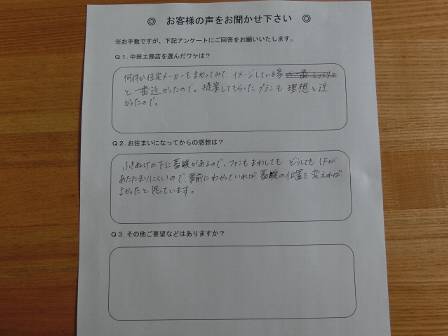 ◎ お客様の声をお聞かせ下さい ◎
※お手数ですが、下記アンケートにご回答をお願いいたします。
Q１. 中井工務店を選んだワケは？
何件か住宅メーカーもまわってみて、イメージしている家
と一番近かったので。提案してもらったプランも理想と近
かったので。
Q２. お住まいになってからの感想は？
ふきぬけの下に があるので、ファンをまわしても どうしても 1Fが
あたたまりにくいので、事前にわかっていれば の位置を変えれば
よかったと思っています。
Q３. その他ご要望などはありますか？